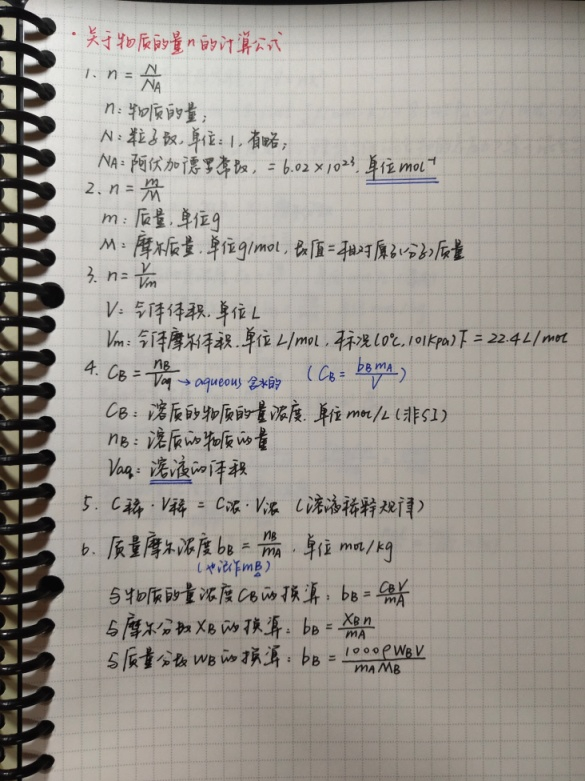 ·关于物质的量n的计算公式
1. n = N/NA
n:物质的量;
N:粒子数,单位:1,省略;
NA:阿伏加德罗常数, = 6.02×10²³,单位mol⁻¹
2. n = m/M
m:质量,单位g
M:摩尔质量,单位g/mol,数值=相对原子(分子)质量
3. n = V/Vm
V:气体体积,单位L
Vm:气体摩尔体积,单位L/mol,标况(0℃,101Kpa)下=22.4L/mol
4. CB = nB/Vaq → aqueous 含水的 (CB = bB mA/V)
CB:溶质的物质的量浓度,单位mol/L(非SI)
nB:溶质的物质的量
Vaq:溶液的体积
5. C稀·V稀 = C浓·V浓 (溶液稀释规律)
6. 质量摩尔浓度bB = nB/mA,单位mol/kg
(也记作mB)
与物质的量浓度CB的换算:bB = CBV/mA
与摩尔分数XB的换算:bB = XBn/mA
与质量分数WB的换算:bB = 1000ρWBV/mAMB